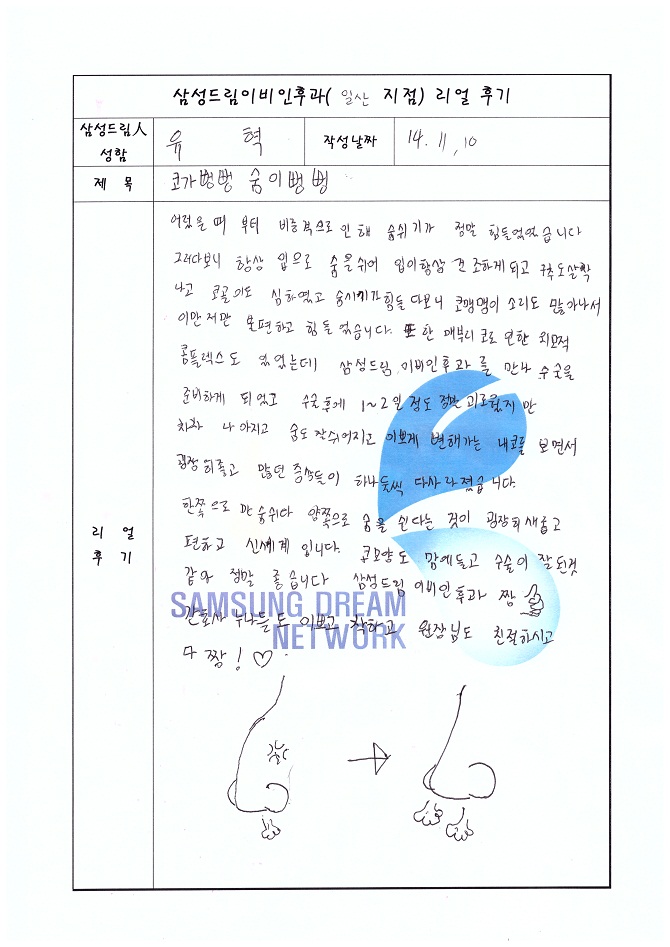 삼성드림이비인후과( 일산 지점) 리얼 후기
삼성드림人 성함
유 혁
작성날짜
14. 11, 10
제 목
코가뻥뻥 숨이뻥뻥
리 얼
후 기
어렸을 때 부터 비중격으로 인해 숨쉬기가 정말 힘들었었습니다
그러다보니 항상 입으로 숨을쉬어 입이항상 건조하게되고 구취도살짝
나고 코골이도 심하였고 숨시기가힘들다보니 코맹맹이 소리도 많아나서
이만저만 불편하고 힘들었습니다. 또한 매부리코로 인한 외모적
콤플렉스도 있었는데 삼성드림 이비인후과를 만나 수술을
준비하게 되었고 수술후에 1~2일 정도 정말 괴로웠지만
차차 나아지고 숨도 잘쉬어지고 이쁘게 변해가는 내코를 보면서
굉장히좋고 많던 증상들이 하나둘씩 다사라졌습니다.
한쪽으로만 숨쉬다 양쪽으로 숨을 쉰다는 것이 굉장히새롭고
편하고 신세계 입니다. 코모양도 맘에들고 수술이 잘된것
같아 정말 좋습니다 삼성드림 이비인후과 짱
간호사 누나들도 이쁘고 착하고 원장님도 친절하시고
다 짱! ♡.
SAMSUNG DREAM
NETWORK